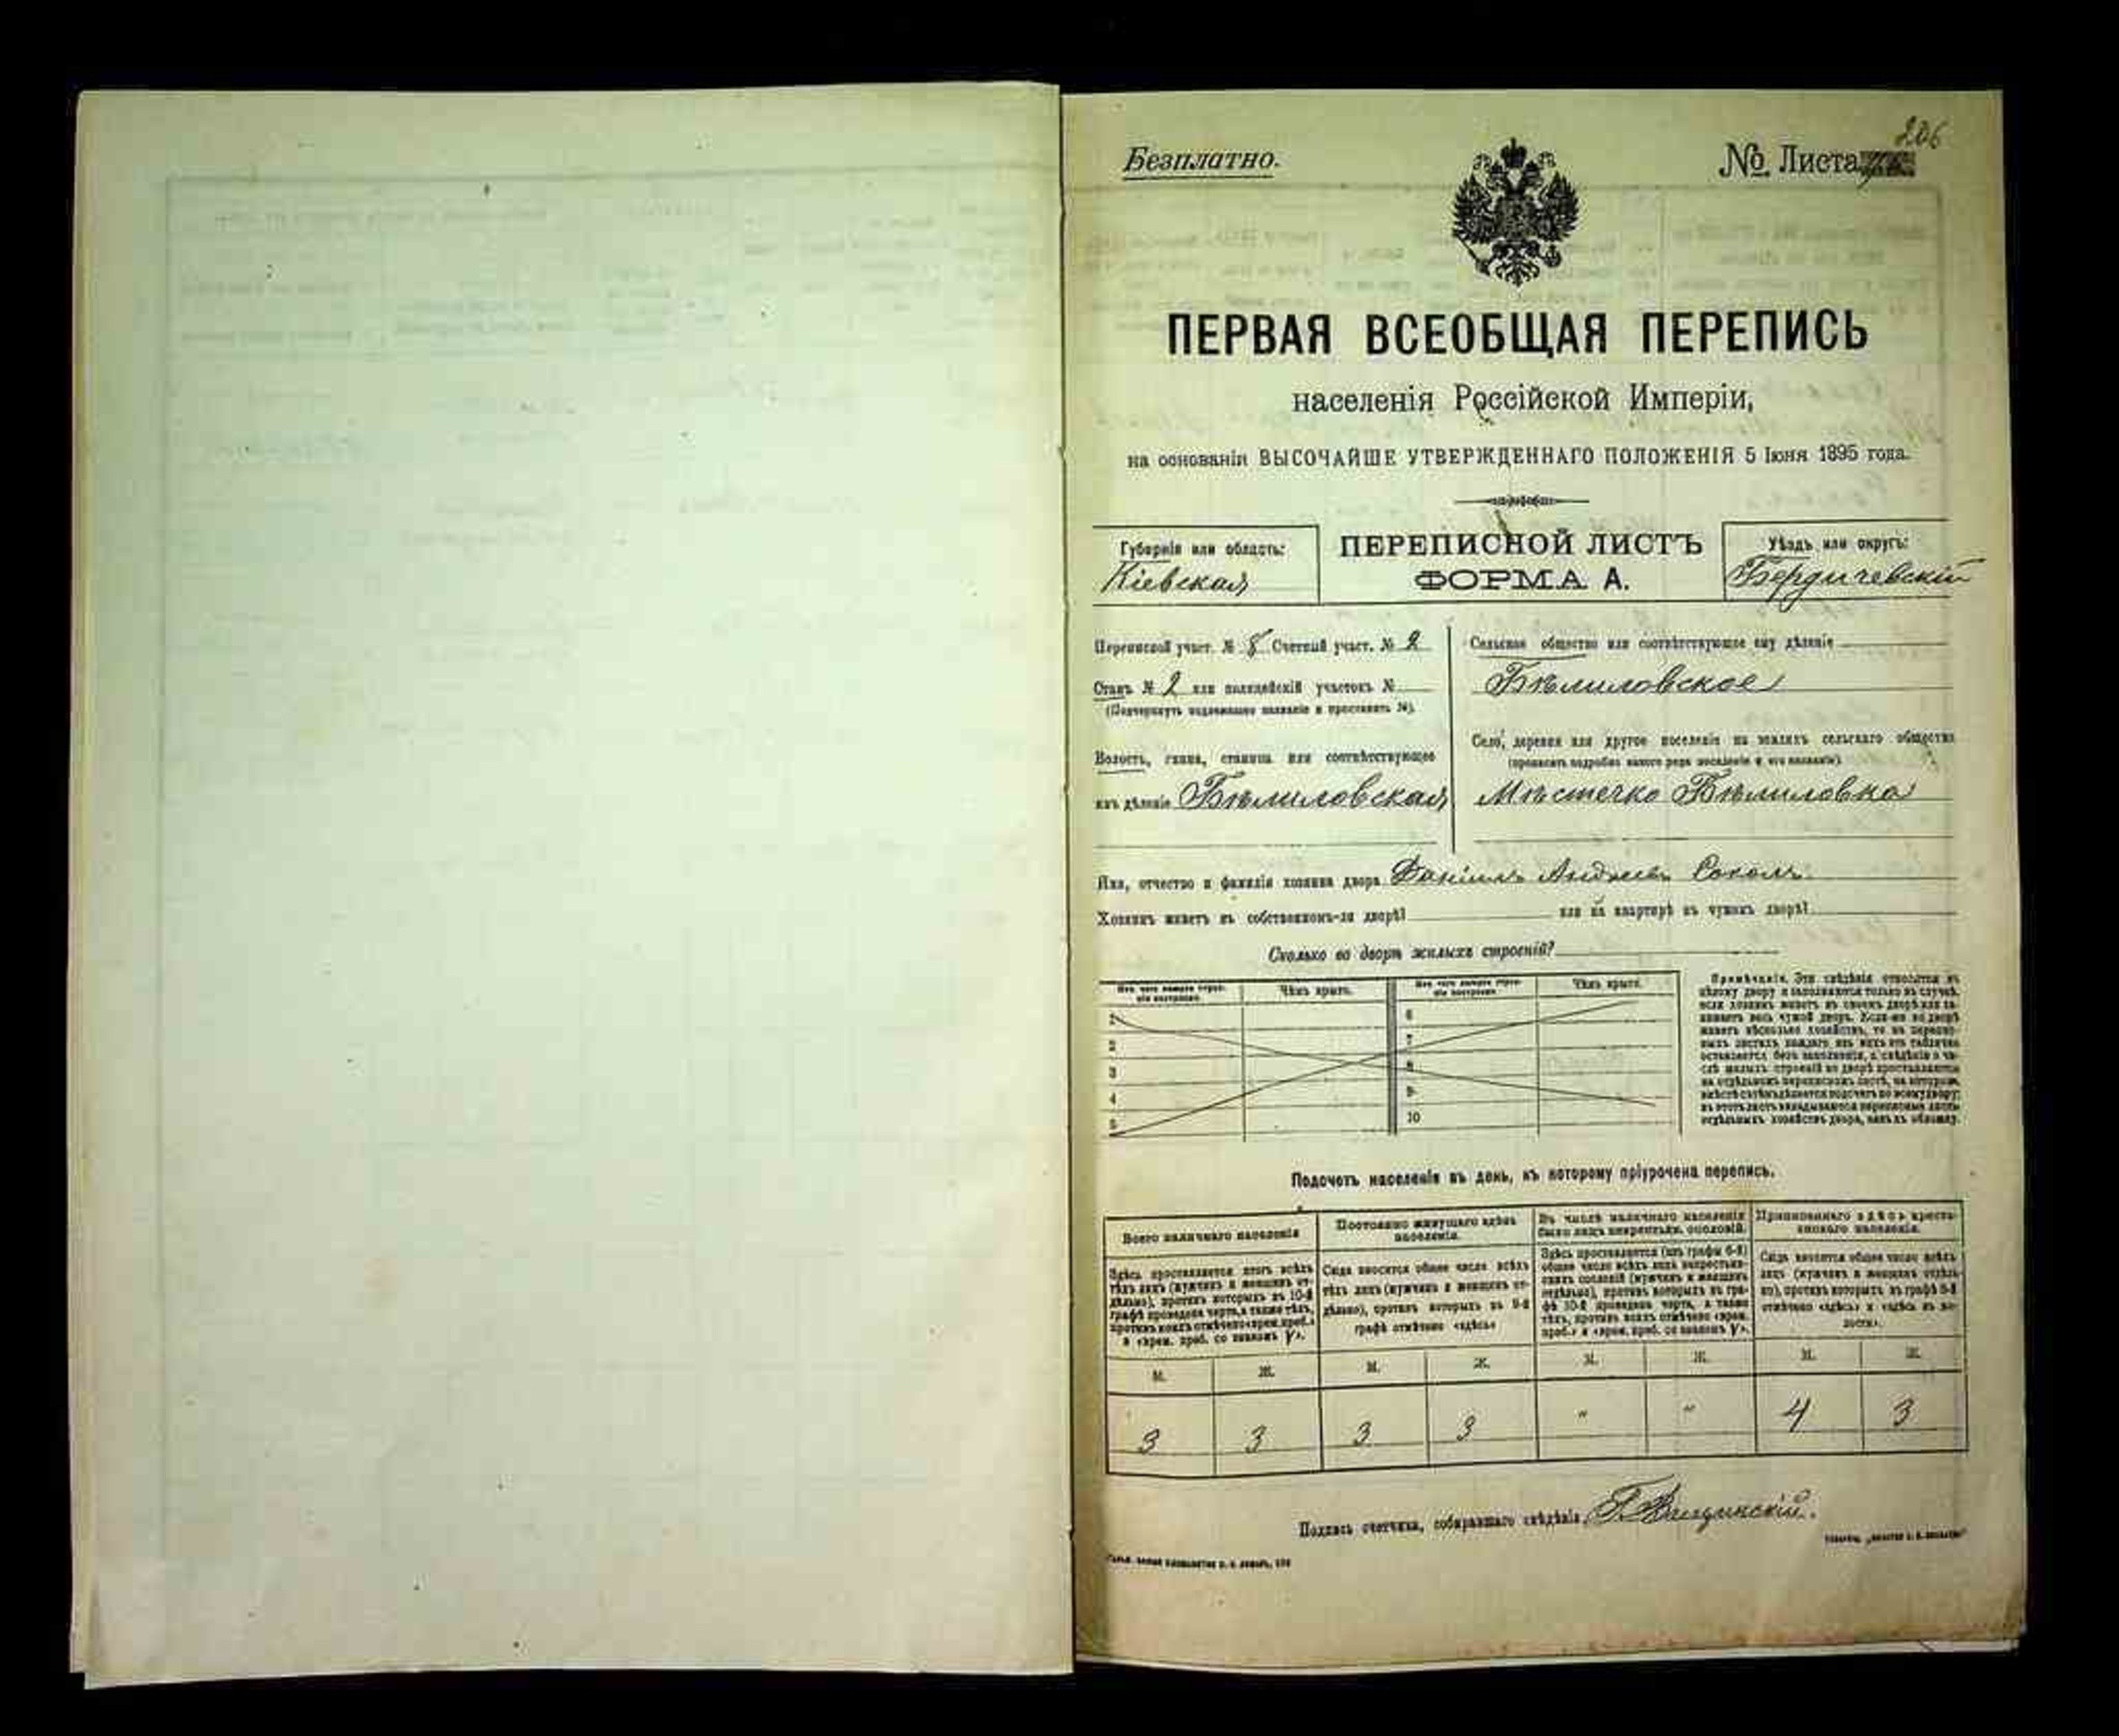 206
Безплатно.
№ Листа
ПЕРВАЯ ВСЕОБЩАЯ ПЕРЕПИСЬ
населенія Россійской Имперіи,
на основаніи ВЫСОЧАЙШЕ УТВЕРЖДЕННАГО ПОЛОЖЕНІЯ 5 Іюня 1895 года.
Губернія или область:
Кіевская
ПЕРЕПИСНОЙ ЛИСТЪ
ФОРМА А.
Уѣздъ или округъ:
Бердичевскій
Переписной участ. № 8 Счетный участ. № 2
Станъ № 2 или полицейскій участокъ №
(Подчеркнуть надлежащее названіе и проставить №).
Волость, гмина, станица или соотвѣтствующее
имъ дѣленіе Бѣлиловская
Сельское общество или соотвѣтствующее ему дѣленіе
Бѣлиловское
Село, деревня или другое поселеніе на земляхъ сельскаго общества
(прописать подробно какого рода поселеніе и его названіе).
Мѣстечко Бѣлиловка
Имя, отчество и фамилія хозяина двора Даніилъ Андреевъ Соколъ
Хозяинъ живетъ въ собственномъ-ли дворѣ? или на квартирѣ въ чужомъ дворѣ?
Сколько во дворѣ жилыхъ строеній?
Изъ чего каждое строеніе построено. Чѣмъ крыто. Изъ чего каждое строеніе построено. Чѣмъ крыто.
1 6
2 7
3 8
4 9
5 10
Примѣчаніе. Эти свѣдѣнія относятся къ
цѣлому двору и заполняются только въ случаѣ,
если хозяинъ живетъ въ своемъ дворѣ или занимаетъ
весь чужой дворъ. Если-же во дворѣ
живетъ нѣсколько хозяйствъ, то на переписныхъ
листахъ каждаго изъ нихъ эта табличка
оставляется безъ заполненія, а свѣдѣнія о числѣ
жилыхъ строеній во дворѣ проставляются
на отдѣльномъ переписномъ листѣ, на которомъ
вмѣстѣ съ тѣмъ дѣлается подсчетъ по всему двору;
въ этотъ листъ вкладываются переписные листы
отдѣльныхъ хозяйствъ двора, какъ въ обложку.
Подсчетъ населенія въ день, къ которому пріурочена перепись.
Всего наличнаго населенія
Здѣсь проставляется итогъ всѣхъ
тѣхъ лицъ (мужчинъ и женщинъ отдѣльно),
противъ которыхъ въ 10-й
графѣ проведена черта, а также тѣхъ,
противъ коихъ отмѣчено «врем. преб.»
и «врем. преб. со знакомъ V».
Постоянно живущаго здѣсь населенія.
Сюда вносится общее число всѣхъ
тѣхъ лицъ (мужчинъ и женщинъ отдѣльно),
противъ которыхъ въ 9-й
графѣ отмѣчено «здѣсь»
Въ числѣ наличнаго населенія
было лицъ некрестьян. сословій.
Здѣсь проставляется (изъ графы 6-й)
общее число всѣхъ лицъ некрестьянскихъ
сословій (мужчинъ и женщинъ
отдѣльно), противъ которыхъ въ графѣ
10-й проведена черта, а также
тѣхъ, противъ коихъ отмѣчено «врем.
преб.» и «врем. преб. со знакомъ V».
Приписаннаго здѣсь крестьянскаго населенія.
Сюда вносится общее число всѣхъ
лицъ (мужчинъ и женщинъ отдѣльно),
противъ которыхъ въ графѣ 8-й
отмѣчено «здѣсь» и «здѣсь въ волости».
М. Ж. М. Ж. М. Ж. М. Ж.
3 3 3 3 " " 4 3
Подпись счетчика, собиравшаго свѣдѣнія